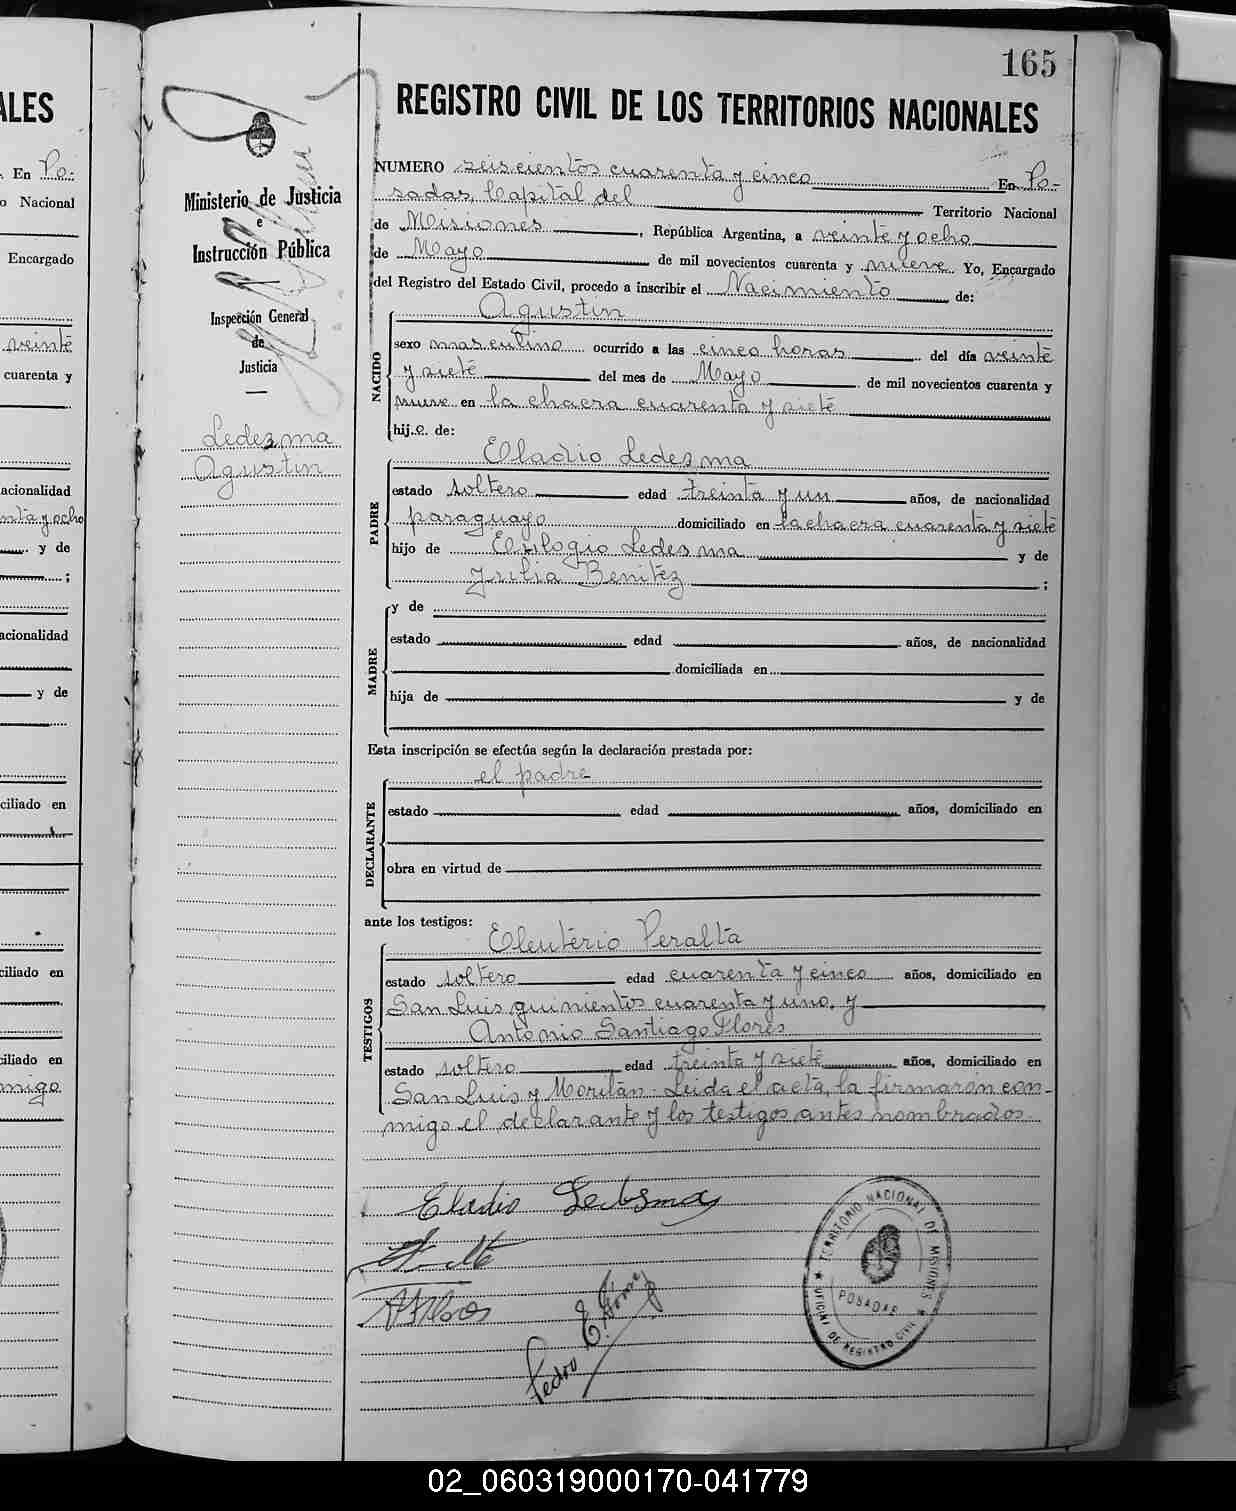 165
REGISTRO CIVIL DE LOS TERRITORIOS NACIONALES
Ministerio de Justicia
e
Instrucción Pública
Inspección General
de
Justicia
Ledezma
Agustin
NUMERO seiscientos cuarenta y cinco En Po-
sadas, Capital del Territorio Nacional
de Misiones, República Argentina, a veinte y ocho
de Mayo de mil novecientos cuarenta y nueve Yo, Encargado
del Registro del Estado Civil, procedo a inscribir el Nacimiento de:
Agustin
NACIDO
sexo masculino ocurrido a las cinco horas del día veinte
y siete del mes de Mayo de mil novecientos cuarenta y
nueve en la chacra cuarenta y siete
hij.o. de:
Eladio Ledesma
PADRE
estado soltero edad treinta y un años, de nacionalidad
paraguayo domiciliado en la chacra cuarenta y siete
hijo de Eulogio Ledesma y de
Julia Benitez ;
y de
MADRE
estado edad años, de nacionalidad
domiciliada en
hija de y de
Esta inscripción se efectúa según la declaración prestada por:
el padre
DECLARANTE
estado edad años, domiciliado en
obra en virtud de
ante los testigos:
Eleuterio Peralta
TESTIGOS
estado soltero edad cuarenta y cinco años, domiciliado en
San Luis quinientos cuarenta y uno, y
Antonio Santiago Flores
estado soltero edad treinta y siete años, domiciliado en
San Luis y Moritán. Leida el acta, la firmaron con-
migo el declarante y los testigos antes nombrados.
Eladio Ledesma
Pedro E. Gómez
TERRITORIO NACIONAL DE MISIONES
POSADAS
OFICINA DE REGISTRO CIVIL
ALES
En Po-
o Nacional
Encargado
veinte
cuarenta y
acionalidad
nta y ocho
y de
;
acionalidad
y de
ciliado en
ciliado en
ciliado en
migo
02_060319000170-041779